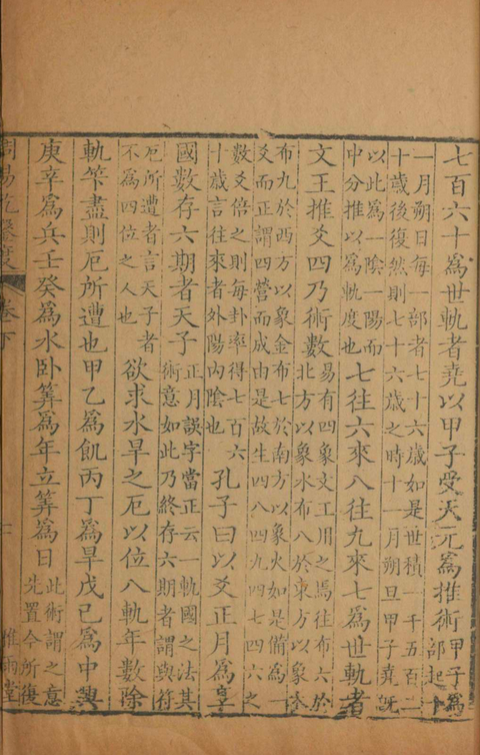 七百六十爲世軌者堯以甲子受天元爲推術
甲子爲
部起十
一月朔日每一部者七十六歲如是世積一千五百二
十歲後復然則七十六歲之時十一月朔旦甲子堯旣
以此爲一陰一陽而
中分推以爲軌度也
七往六來八往九來七爲世軌者
文王推爻四乃術數
易有四象文王用之焉往布六於
北方以象水布八於東方以象木
布九於西方以象金布七於南方以象火如是備爲一
爻而正謂四營而成由是故生四八四九四七四六之
數爻倍之則每卦率得七百六
十歲言往來者外陽内陰也
孔子曰以爻正月爲享
國數存六期者天子
正月誤字當正云一軌國之法其
術意如此乃終存六期者謂與符
厄所遭者言天子者
不爲四位之人也
欲求水旱之厄以位八軌年數除
軌筭盡則厄所遭也甲乙爲飢丙丁爲旱戊己爲中興
庚辛爲兵壬癸爲水卧筭爲年立筭爲日
此術謂之意
先置今所復
周易乾鑿度
卷下
雅雨堂